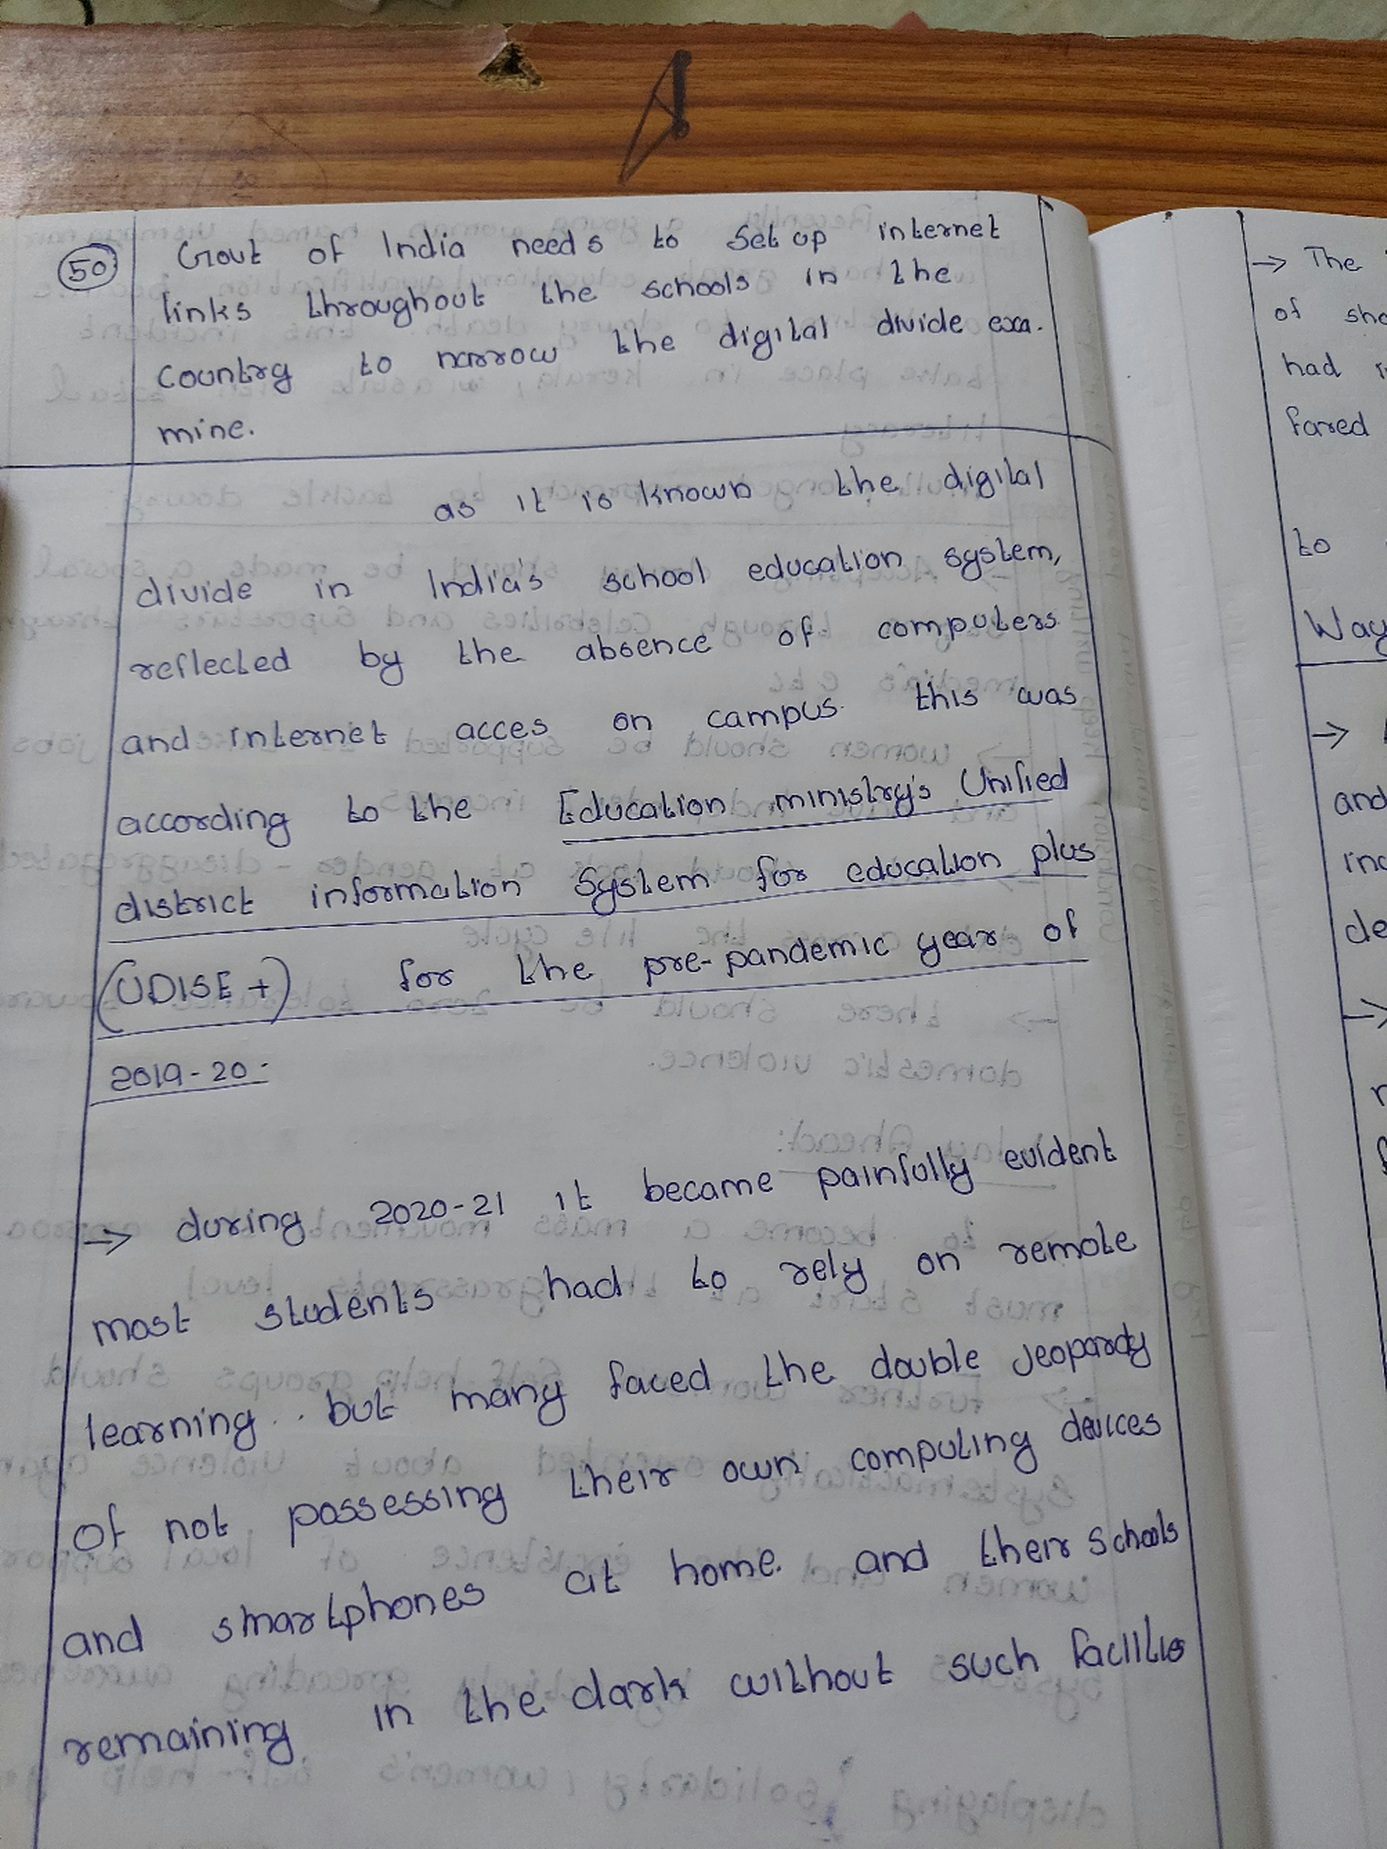 50
Govt of India needs to Set up internet
links throughout the schools in the
country to narrow the digital divide exa.
mine.
as it is known the digital
divide in India's school education system,
reflected by the absence of computers
and internet acces on campus. this was
according to the Education ministry's Unified
district information System for education plus
(UDISE+) for the pre-pandemic year of
2019-20.
→ during 2020-21 it became painfully evident
most students had to rely on remote
learning.. but many faced the double jeopardy
of not possessing their own computing devices
and smartphones at home. and their schools
remaining in the dark without such facilities
→ The
of
had
fared
to
Way
→
and
de
→